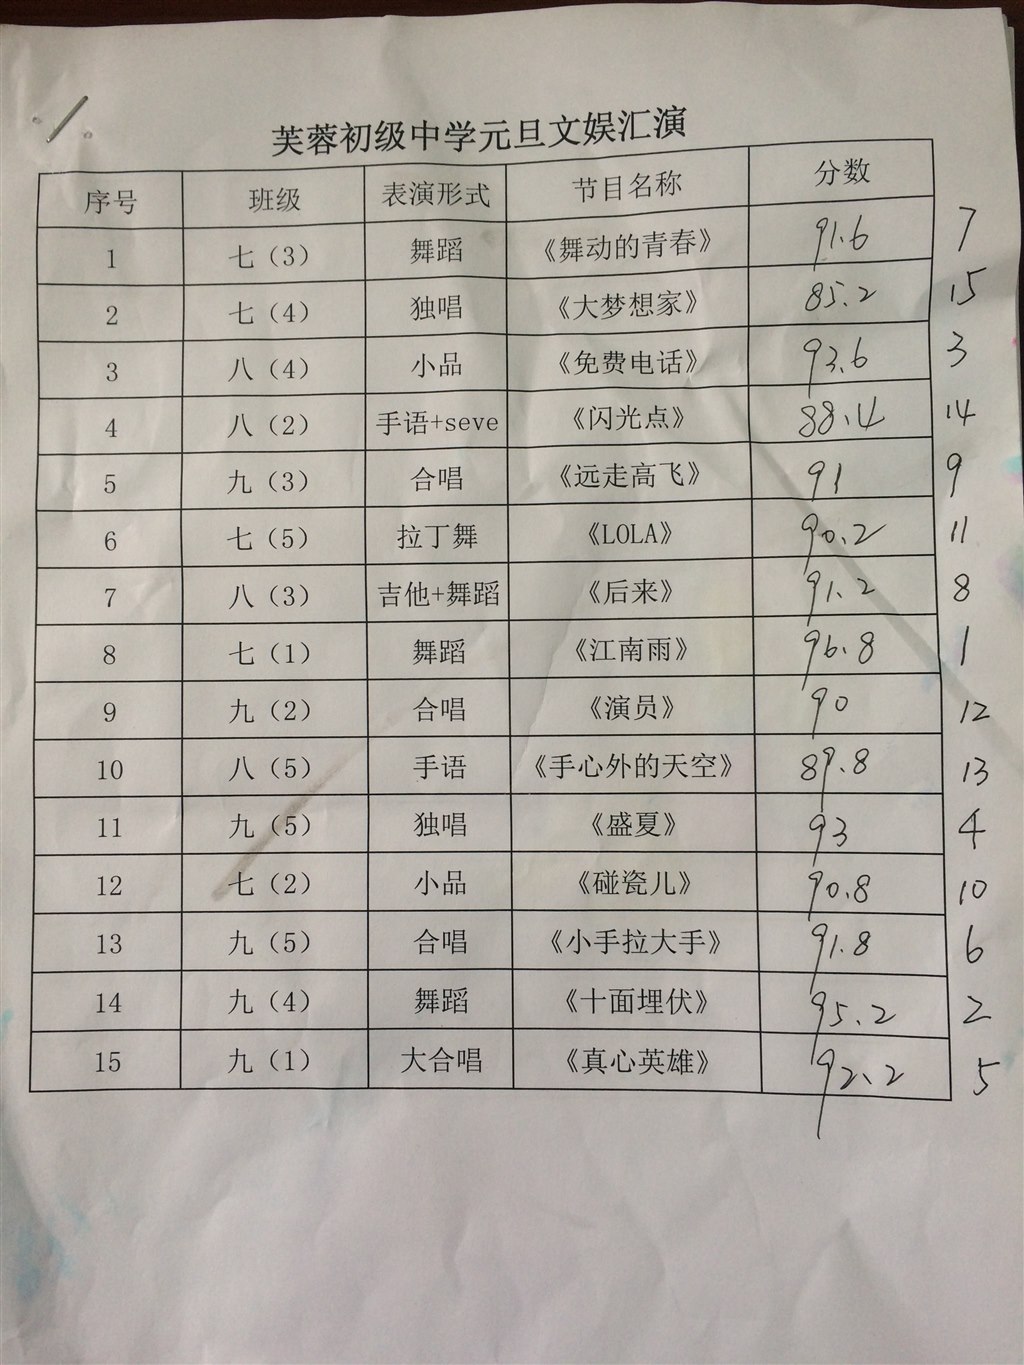 芙蓉初级中学元旦文娱汇演
序号 班级 表演形式 节目名称 分数
1 七（3） 舞蹈 《舞动的青春》 91.6 7
2 七（4） 独唱 《大梦想家》 85.2 15
3 八（4） 小品 《免费电话》 93.6 3
4 八（2） 手语+seve 《闪光点》 88.4 14
5 九（3） 合唱 《远走高飞》 91 9
6 七（5） 拉丁舞 《LOLA》 90.2 11
7 八（3） 吉他+舞蹈 《后来》 91.2 8
8 七（1） 舞蹈 《江南雨》 96.8 1
9 九（2） 合唱 《演员》 90 12
10 八（5） 手语 《手心外的天空》 89.8 13
11 九（5） 独唱 《盛夏》 93 4
12 七（2） 小品 《碰瓷儿》 90.8 10
13 九（5） 合唱 《小手拉大手》 91.8 6
14 九（4） 舞蹈 《十面埋伏》 95.2 2
15 九（1） 大合唱 《真心英雄》 92.2 5